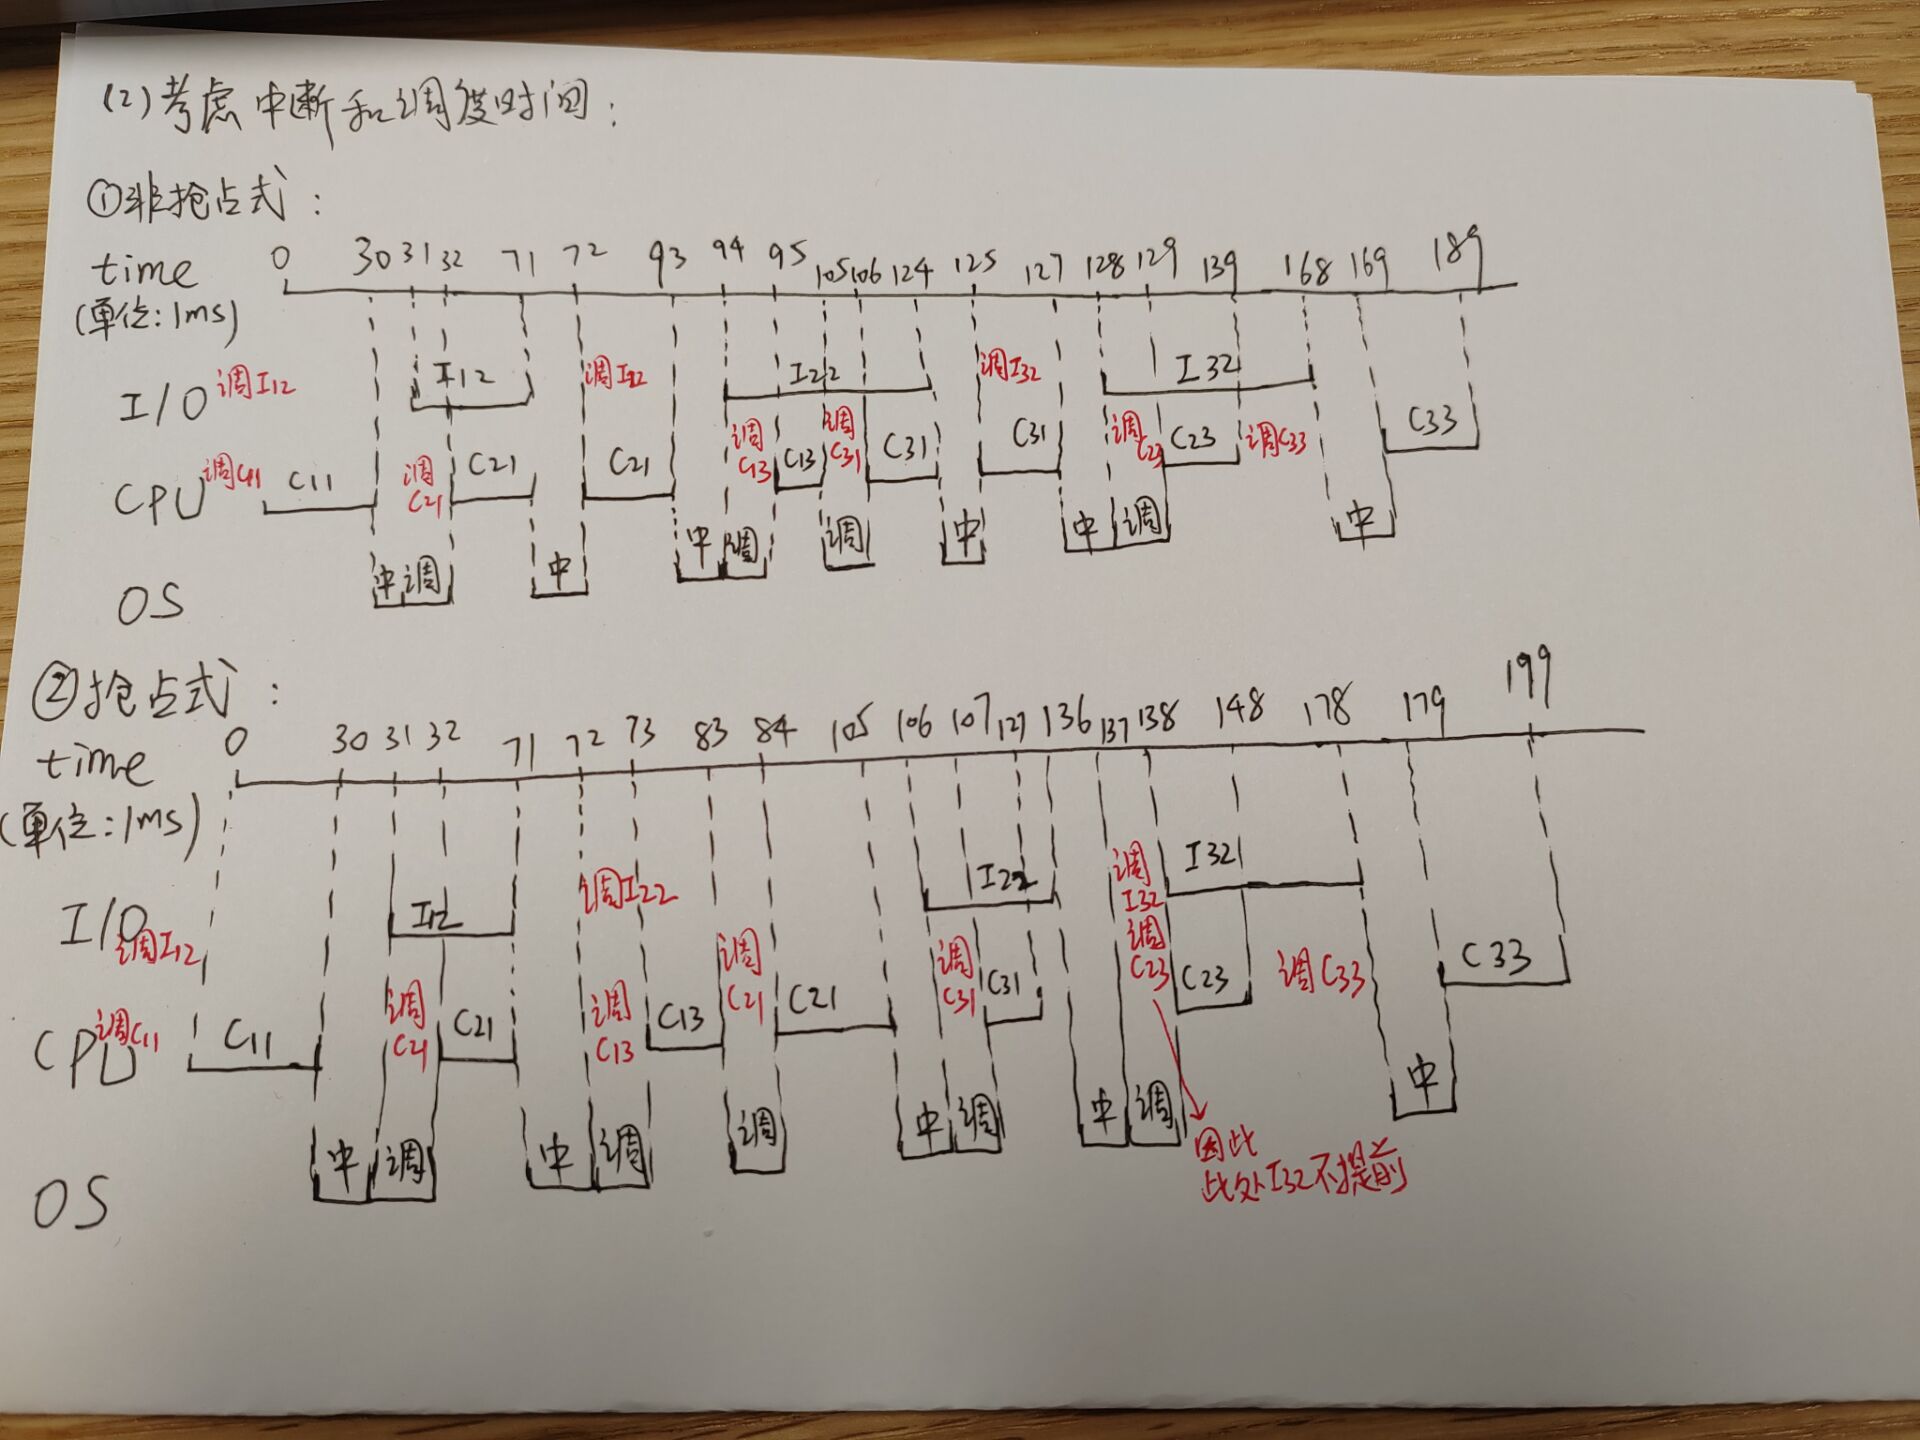 (2)考虑中断和调度时间:
①非抢占式:
time 0 30 31 32 71 72 93 94 95 105 106 124 125 127 128 129 139 168 169 189
(单位:1ms)
I/O 调I12 I12 调I22 I22 调I32 I32
CPU 调C11 C11 调C21 C21 C21 调C13 C13 调C31 C31 C31 调C23 C23 调C33 C33
OS 中 调 中 中 调 调 中 中 调 中
②抢占式:
time 0 30 31 32 71 72 73 83 84 105 106 107 127 136 137 138 148 178 179 199
(单位:1ms)
I/O 调I12 I12 调I22 I22 调I32 I32
CPU 调C11 C11 调C21 C21 调C13 C13 调C21 C21 调C31 C31 调C23 C23 调C33 C33
OS 中 调 中 调 调 中 调 中 调 中
因此
此处I32不提前